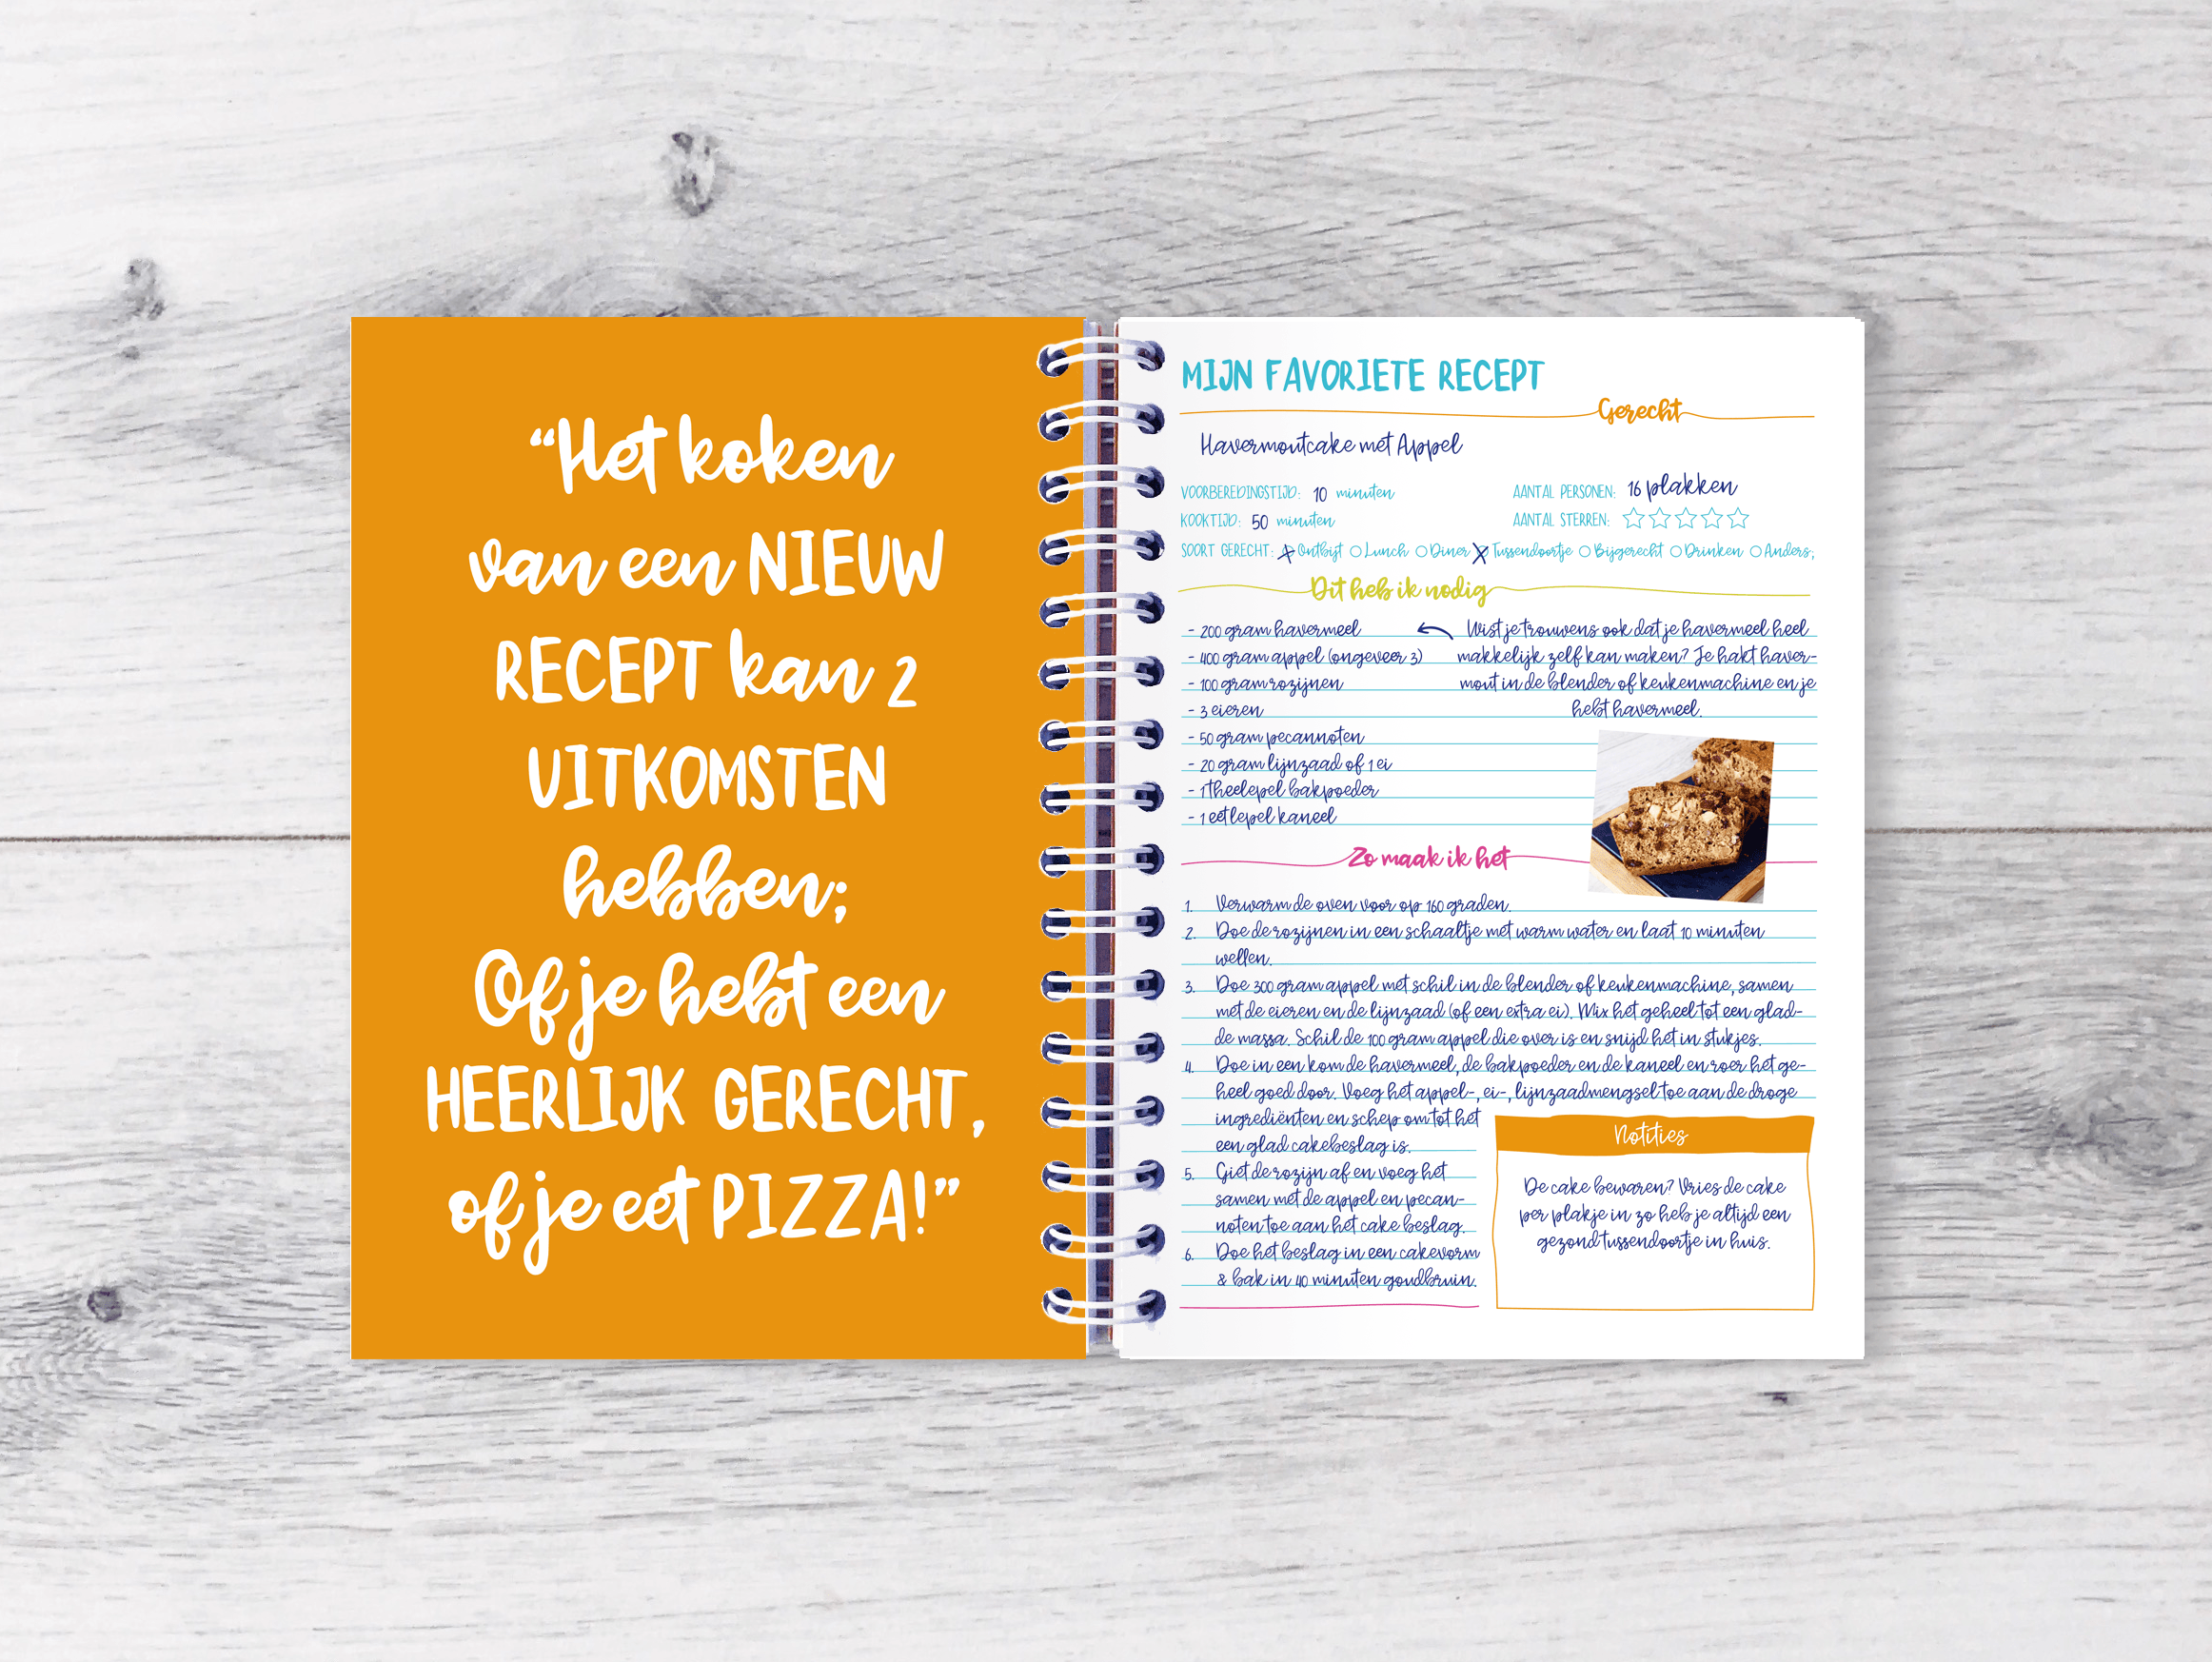 “Het koken
van een NIEUW
RECEPT kan 2
UITKOMSTEN
hebben;
Of je hebt een
HEERLIJK GERECHT,
of je eet PIZZA!”
MIJN FAVORIETE RECEPT
Gerecht
Havermoutcake met Appel
VOORBEREDINGSTIJD: 10 minuten
AANTAL PERSONEN: 16 plakken
KOOKTIJD: 50 minuten
AANTAL STERREN:
SOORT GERECHT: Ontbijt Lunch Diner Tussendoortje Bijgerecht Drinken Anders;
Dit heb ik nodig
- 200 gram havermeel
- 400 gram appel (ongeveer 3)
- 100 gram rozijnen
- 3 eieren
- 50 gram pecannoten
- 20 gram lijnzaad of 1 ei
- 1 Theelepel bakpoeder
- 1 eetlepel kaneel
Wist je trouwens ook dat je havermeel heel
makkelijk zelf kan maken? Je hakt haver-
mout in de blender of keukenmachine en je
hebt havermeel.
Zo maak ik het
1. Verwarm de oven voor op 160 graden.
2. Doe de rozijnen in een schaaltje met warm water en laat 10 minuten
wellen.
3. Doe 300 gram appel met schil in de blender of keukenmachine, samen
met de eieren en de lijnzaad (of een extra ei). Mix het geheel tot een glad-
de massa. Schil de 100 gram appel die over is en snijd het in stukjes.
4. Doe in een kom de havermeel, de bakpoeder en de kaneel en roer het ge-
heel goed door. Voeg het appel-, ei-, lijnzaadmengsel toe aan de droge
ingrediënten en schep om tot het
een glad cakebeslag is.
5. Giet de rozijn af en voeg het
samen met de appel en pecan-
noten toe aan het cake beslag.
6. Doe het beslag in een cakevorm
& bak in 40 minuten goudbruin.
Notities
De cake bewaren? Vries de cake
per plakje in zo heb je altijd een
gezond tussendoortje in huis.